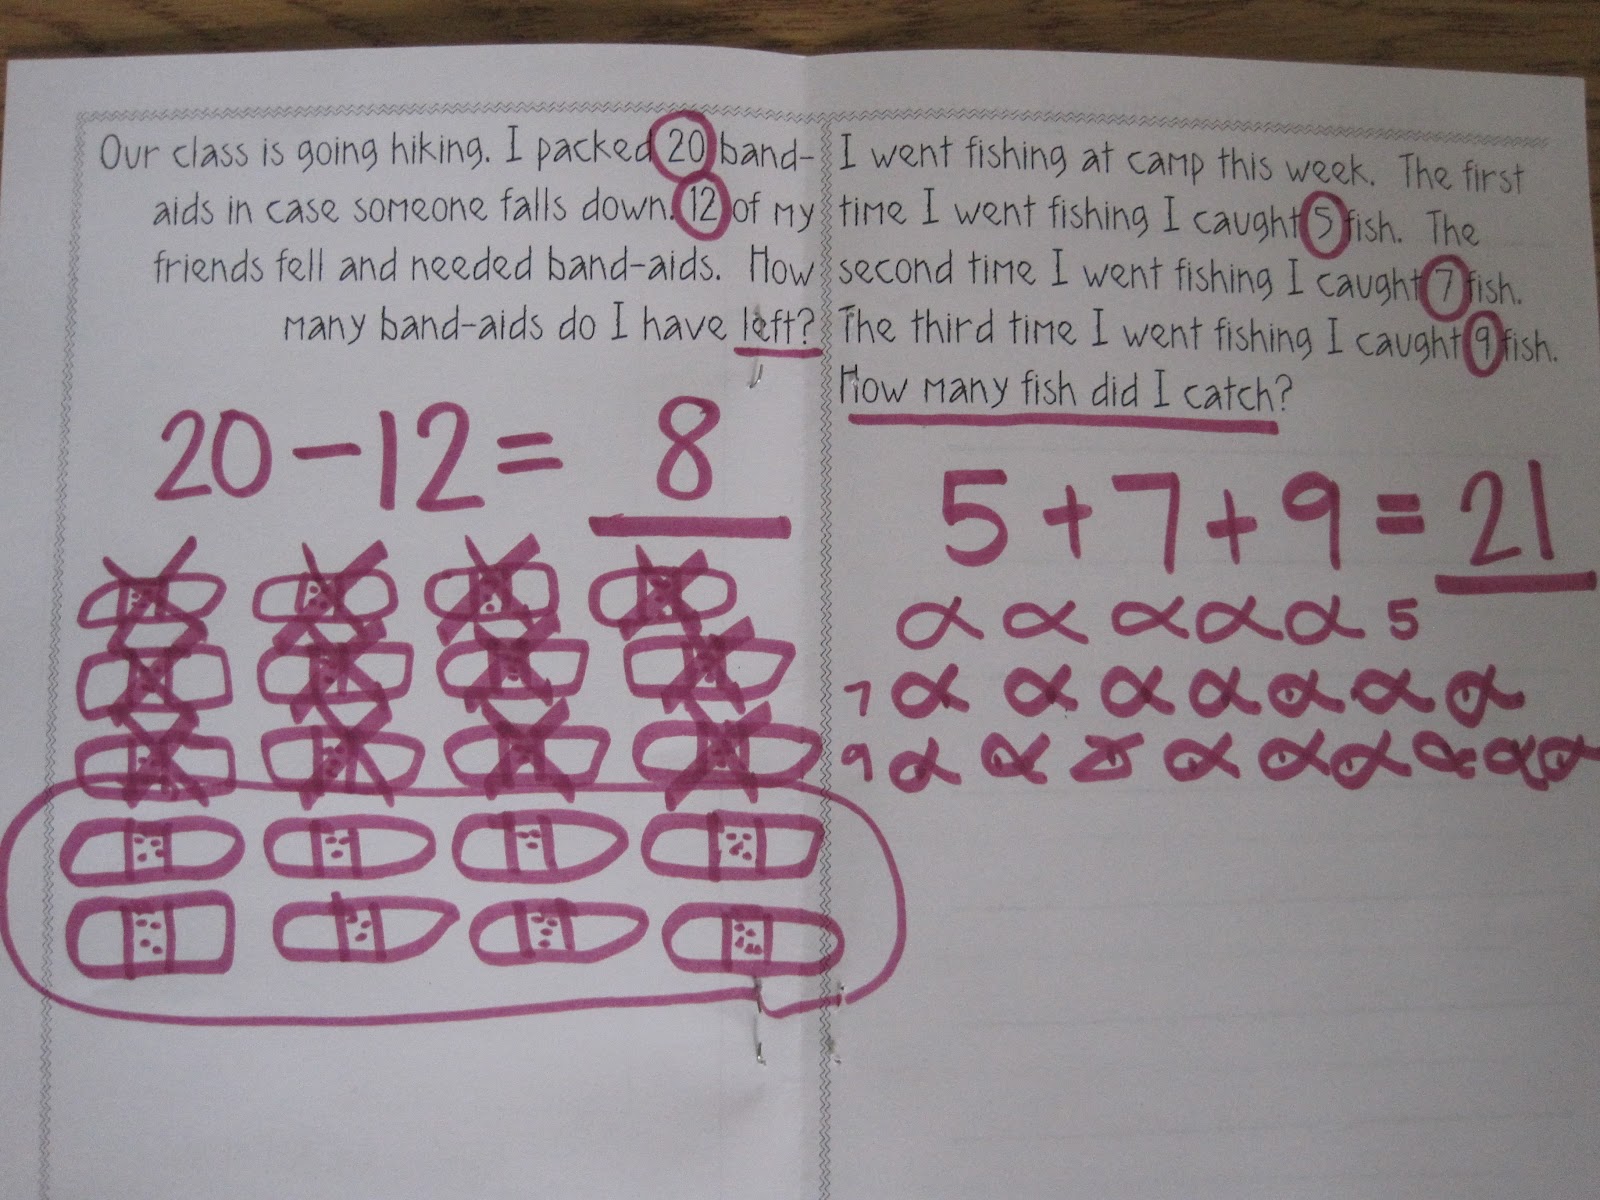 Our class is going hiking. I packed 20 band-
aids in case someone falls down. 12 of my
friends fell and needed band-aids. How
many band-aids do I have left?
20 - 12 = 8
I went fishing at camp this week. The first
time I went fishing I caught 5 fish. The
second time I went fishing I caught 7 fish.
The third time I went fishing I caught 9 fish.
How many fish did I catch?
5 + 7 + 9 = 21
5
7
9